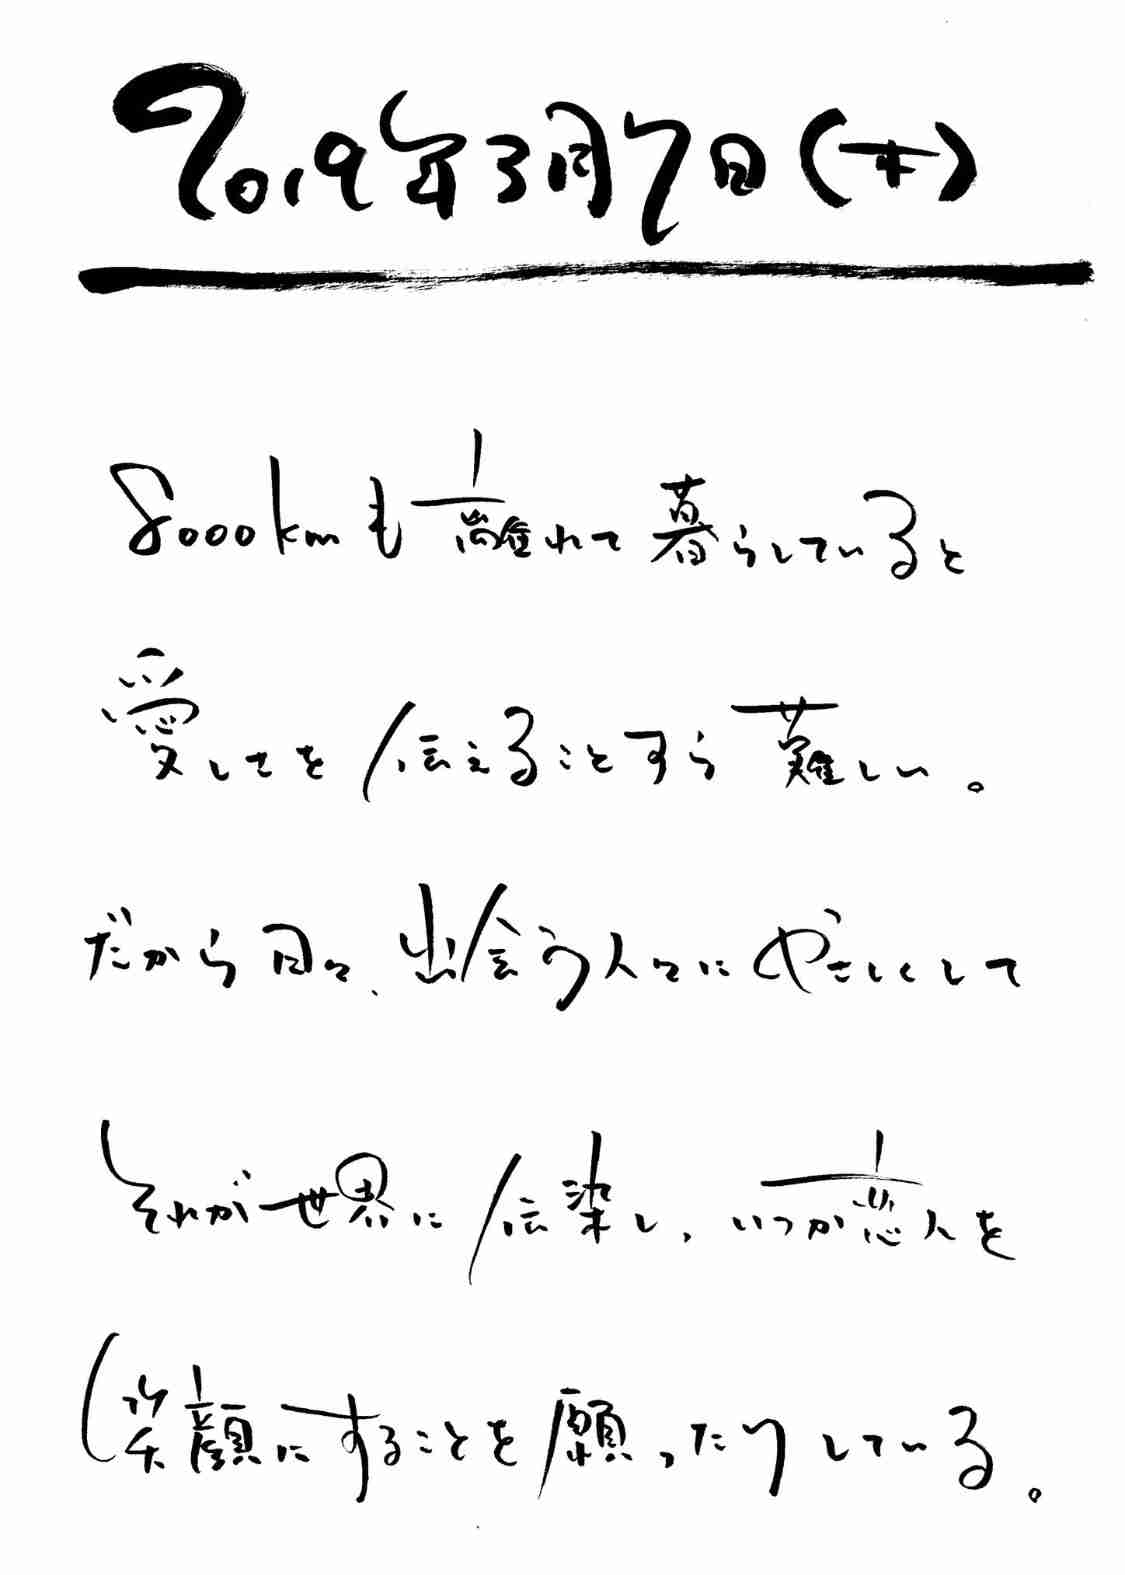 2019年3月7日(木)
8000kmも離れて暮らしていると
愛しさを伝えることすら難しい。
だから日々、出会う人々にやさしくして
それが世界に伝染し、いつか恋人を
笑顔にすることを願ったりしている。